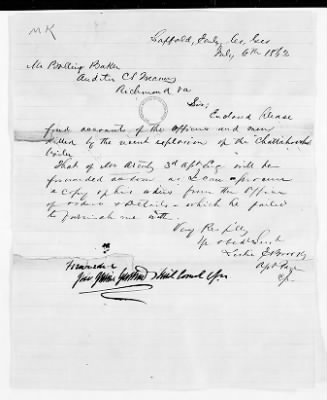 MK
Saffold, Early Co, Geo
July 6th 1863
Mr Bolling Baker
Auditor CS Treasury
Richmond Va
Sir;
Enclosed Please
find accounts of the officers and men
killed by the recent explosion of the "Chattahoochee"
boiler
That of Mr 3d Asst Eng. will be
forwarded as soon as I can procure
a copy of his orders from the Office
of orders & Details - which he failed
to furnish me with.
Very Respflly
Yr obedt Servt
Asst Paym
Forwarded